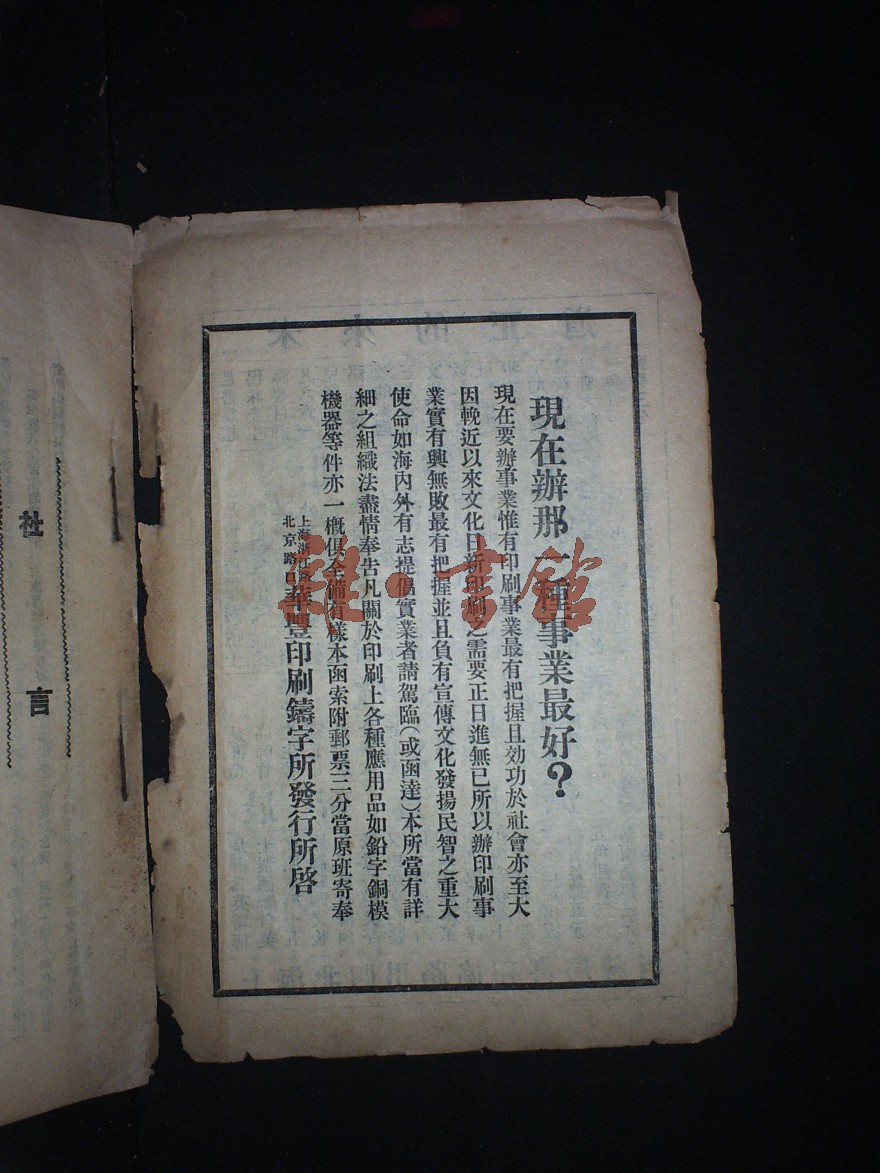 現在辦那一種事業最好？
現在要辦事業惟有印刷事業最有把握且効功於社會亦至大
因輓近以來文化日新印刷之需要正日進無已所以辦印刷事
業實有興無敗最有把握並且負有宣傳文化發揚民智之重大
使命如海內外有志提倡實業者請駕臨（或函達）本所當有詳
細之組織法盡情奉告凡關於印刷上各種應用品如鉛字銅模
機器等件亦一概俱全備有樣本函索附郵票三分當原班寄奉
上海浙江路
北京路口
華豐印刷鑄字所發行所啓
社言